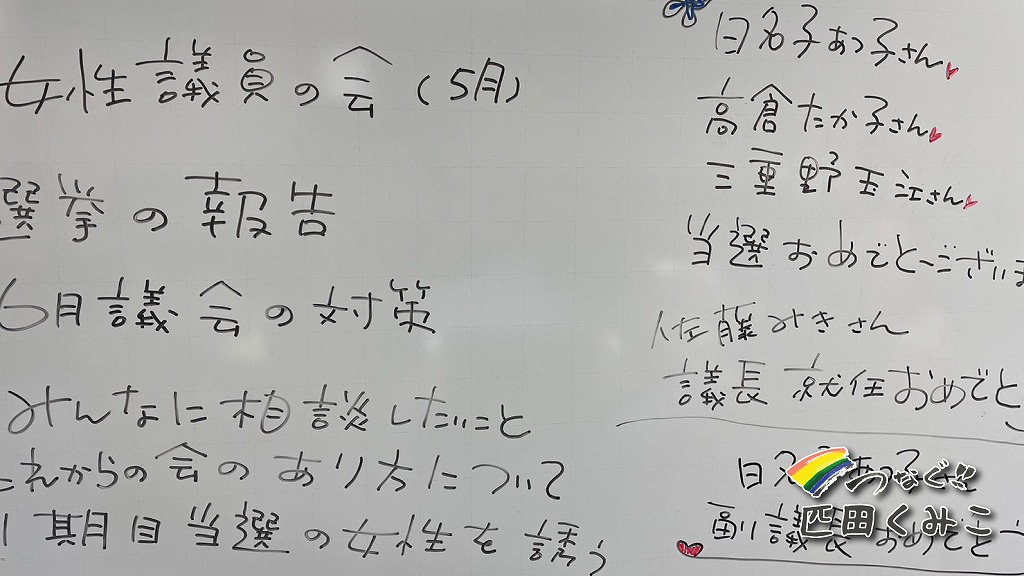 女性議員の会（5月）
選挙の報告
6月議会の対策
みんなに相談したいこと
これからの会のあり方について
1期目当選の女性を誘う
日名子あつ子さん
高倉たか子さん
三重野玉江さん
当選おめでとーございま
佐藤みきさん
議長就任おめでと
日名子あつ子さん
副議長おめでとう
つなぐ!!
匹田くみこ